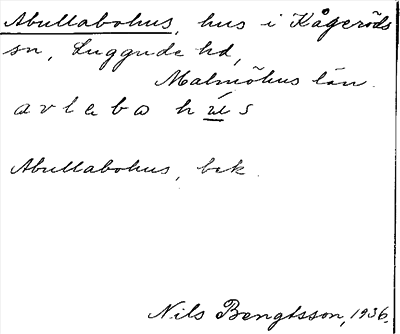 Abullabohus, hus i Kågeröds
sn, Luggude hd,
Malmöhus län.
avlabo hús
Abullabohus, bek.
Nils Bengtsson, 1936.